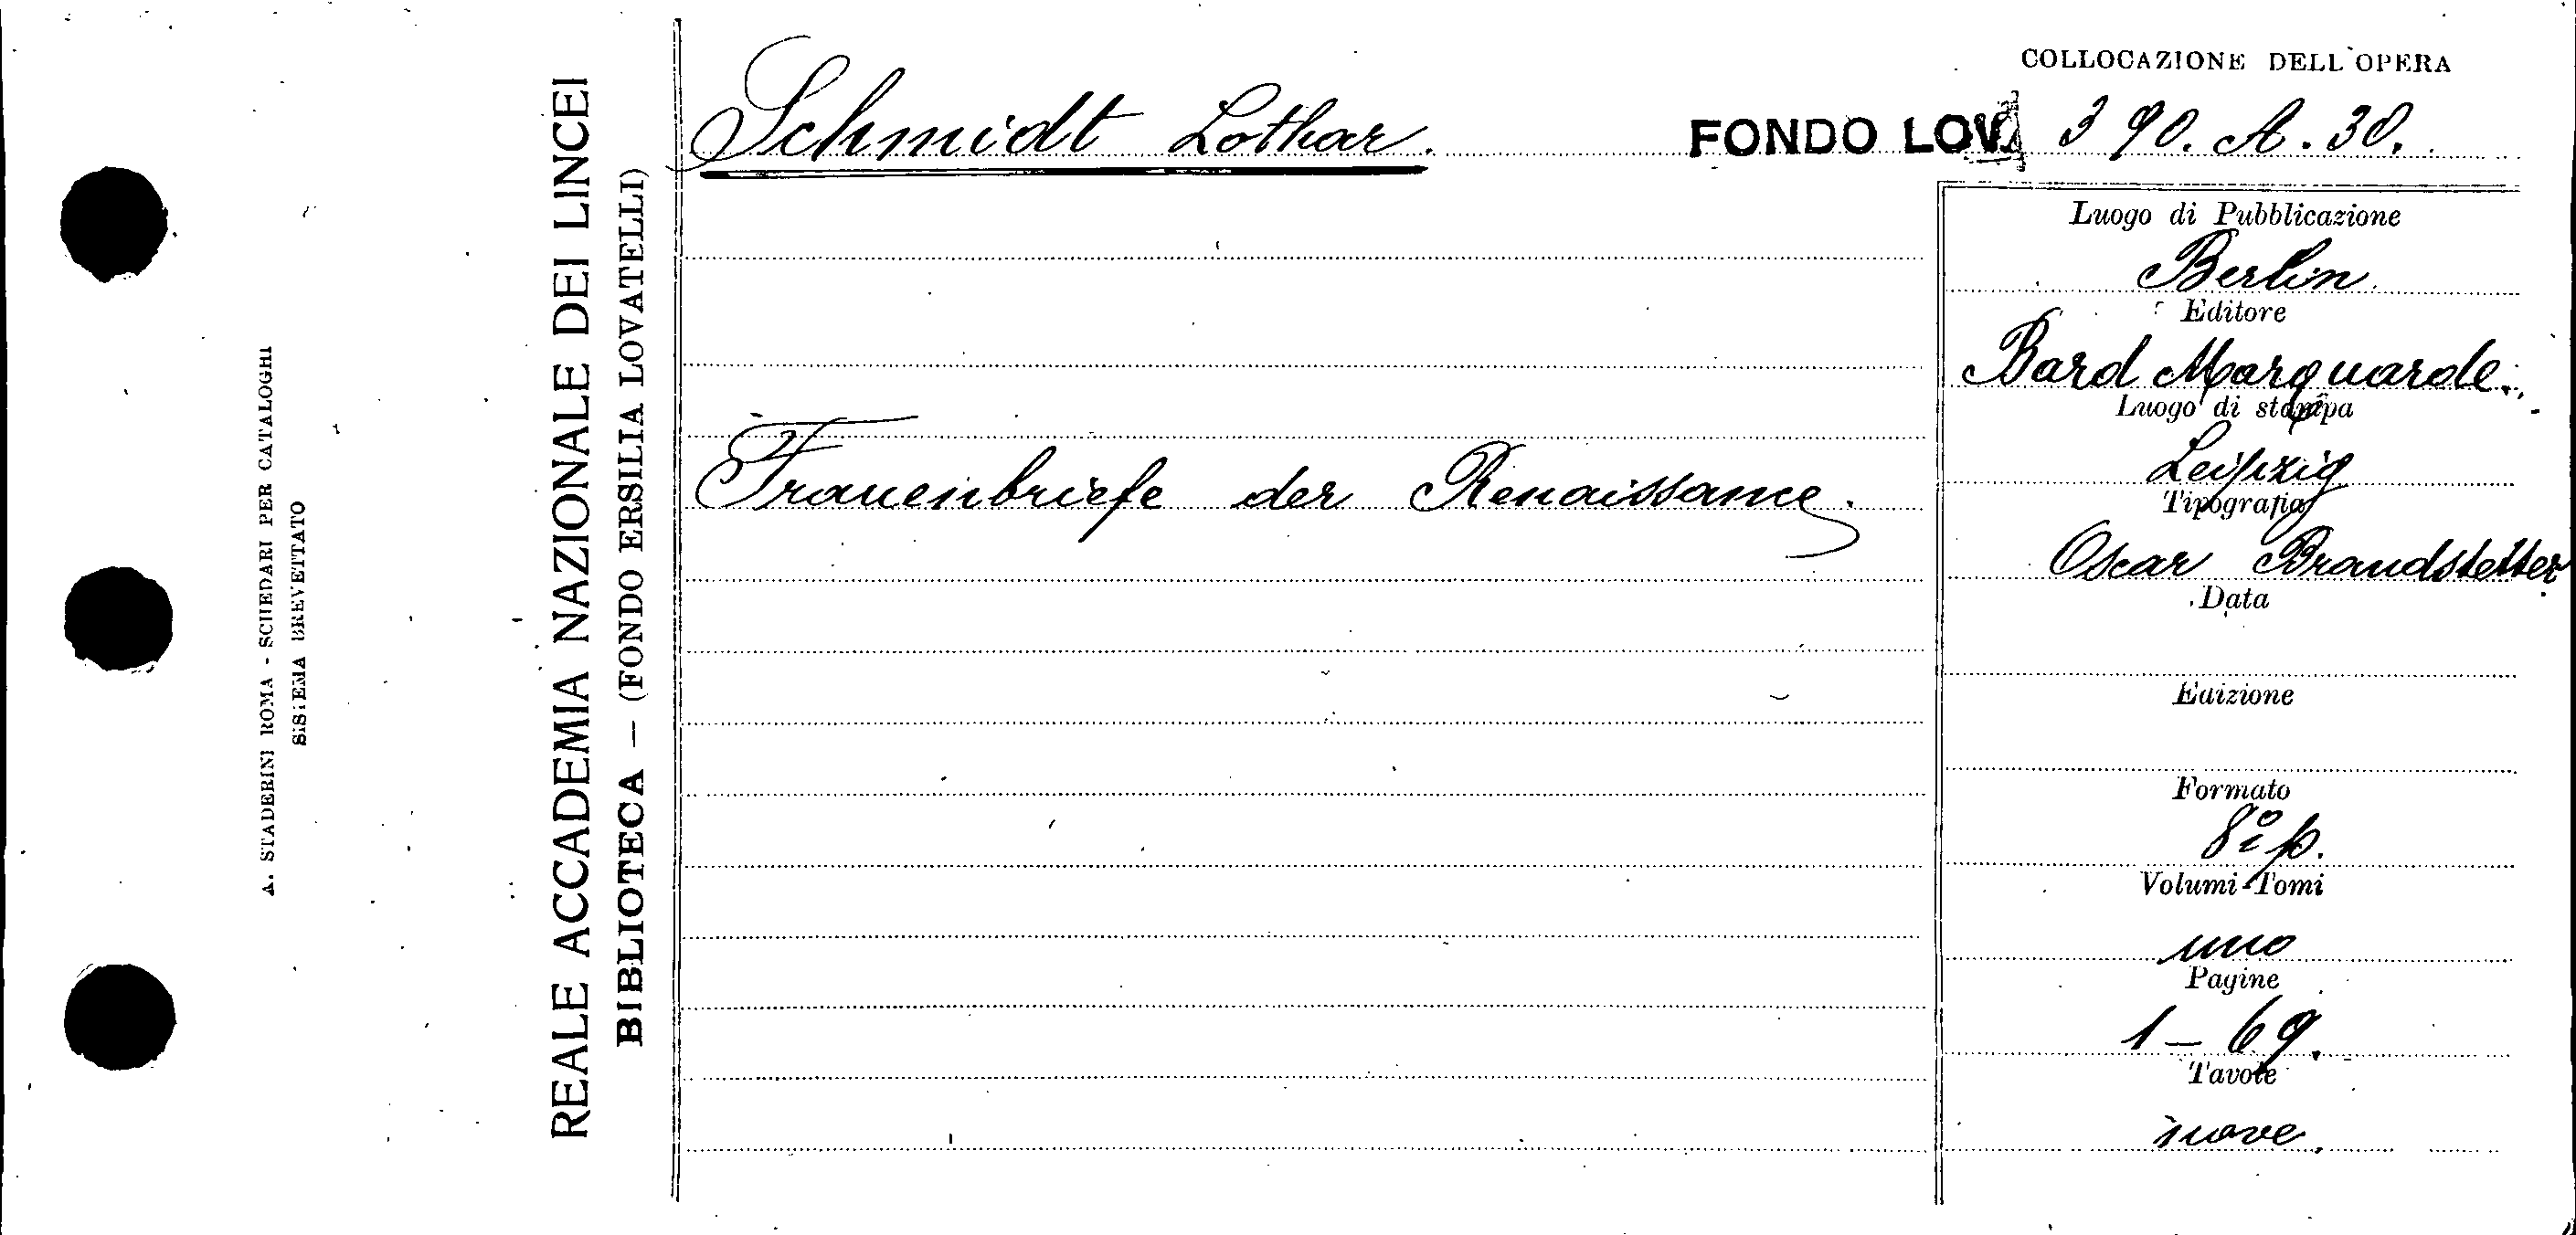 A. STADERINI ROMA - SCHEDARI PER CATALOGHI
SISTEMA BREVETTATO
REALE ACCADEMIA NAZIONALE DEI LINCEI
BIBLIOTECA — (FONDO ERSILIA LOVATELLI)
COLLOCAZIONE DELL'OPERA
Schmidt Lothar. FONDO LOV. 390. A. 30.
Luogo di Pubblicazione
Berlin
Editore
Bard Marquarde.
Luogo di stampa
Frauenbriefe der Renaissance.
Leipzig
Tipografia
Oscar Brandstetter
Data
Edizione
Formato
8º p.
Volumi-Tomi
uno
Pagine
1 - 69.
Tavole
nove.